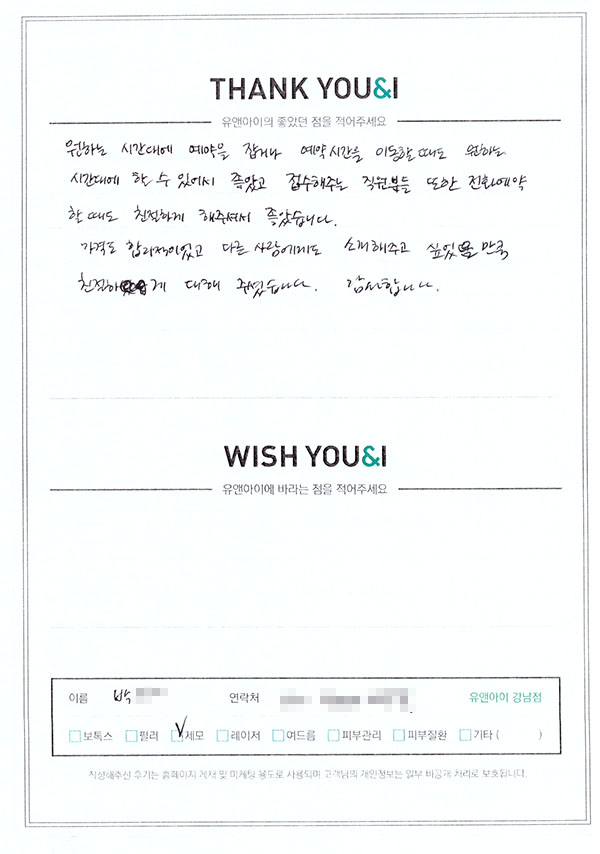 THANK YOU&I
유앤아이의 좋았던 점을 적어주세요
원하는 시간대에 예약을 잡거나 예약시간을 이동할때도 원하는
시간대에 할 수 있어서 좋았고 접수해주는 직원분들 또한 전화예약
할때도 친절하게 해주셔서 좋았습니다.
가격도 합리적이었고 다른 사람에게도 소개해주고 싶었 만큼
친절하 게 대해 주셨습니다. 감사합니다.
WISH YOU&I
유앤아이에 바라는 점을 적어주세요
이름 박 연락처 유앤아이 강남점
보톡스 필러 제모 레이저 여드름 피부관리 피부질환 기타 ( )
작성해주신 후기는 홈페이지 게재 및 마케팅 용도로 사용되며 고객님의 개인정보는 일부 비공개 처리로 보호됩니다.